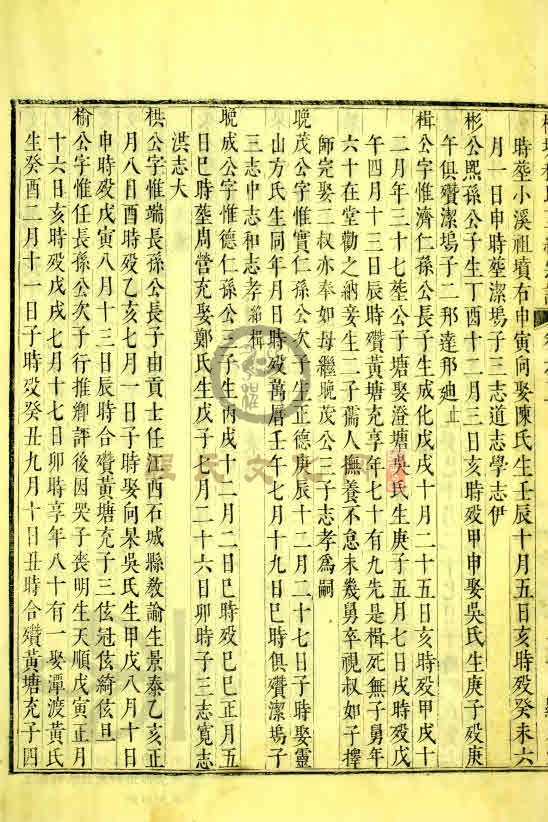 時葬小溪祖墳右申寅向娶陳氏生壬辰十月五日亥時殁癸未六
月一日申時葬潔塢子三志道志學志伊
彬公熙孫公子生丁酉十二月三日亥時殁甲申娶吳氏生庚子殁庚
午俱殯潔塢子二那達那迪止
楫公字惟濟仁孫公長子生成化戊戌十月二十五日亥時殁甲戌十
二月年三十七塟公子塘娶澄塘吳氏生庚子五月七日戌時殁戊
午四月三日辰時殯黃塘充享年七十有九先是楫死無子舅年
六十在堂勸之納妾生二子孺人撫養不怠未幾舅卒視叔如子擇
師完娶三叔亦奉如母繼晚茂公三子志孝爲嗣
晚茂公字惟實仁孫公次公子生正德庚辰十二月二十七日子時娶靈
山方氏生同年月日時殁萬曆壬午七月十九日巳時俱殯潔塢子
三志中志和志孝嗣楫
晚成公字惟德仁孫公三子生丙戌十二月二日巳時殁巳巳正月五
日巳時塟周營充娶鄭氏生戊子七月二十六日卯時子三志寬志
洪志大
栱公字惟端長孫公長子由貢士任江西石城縣敎諭生景泰乙亥正
月八日酉時殁乙亥七月一日子時娶向杲吳氏生甲戌八月十日
申時殁戊寅八月十三日辰時合殯黃塘充子三伭冠伭綺伭旦
榆公字惟任長孫公次子行推鄉評後因哭子喪明生天順戊寅正月
十六日亥時殁戊戌七月十七日卯時享年八十有一娶潭渡黃氏
生癸酉二月十一日子時殁癸丑九月十日丑時合殯黃塘充子四